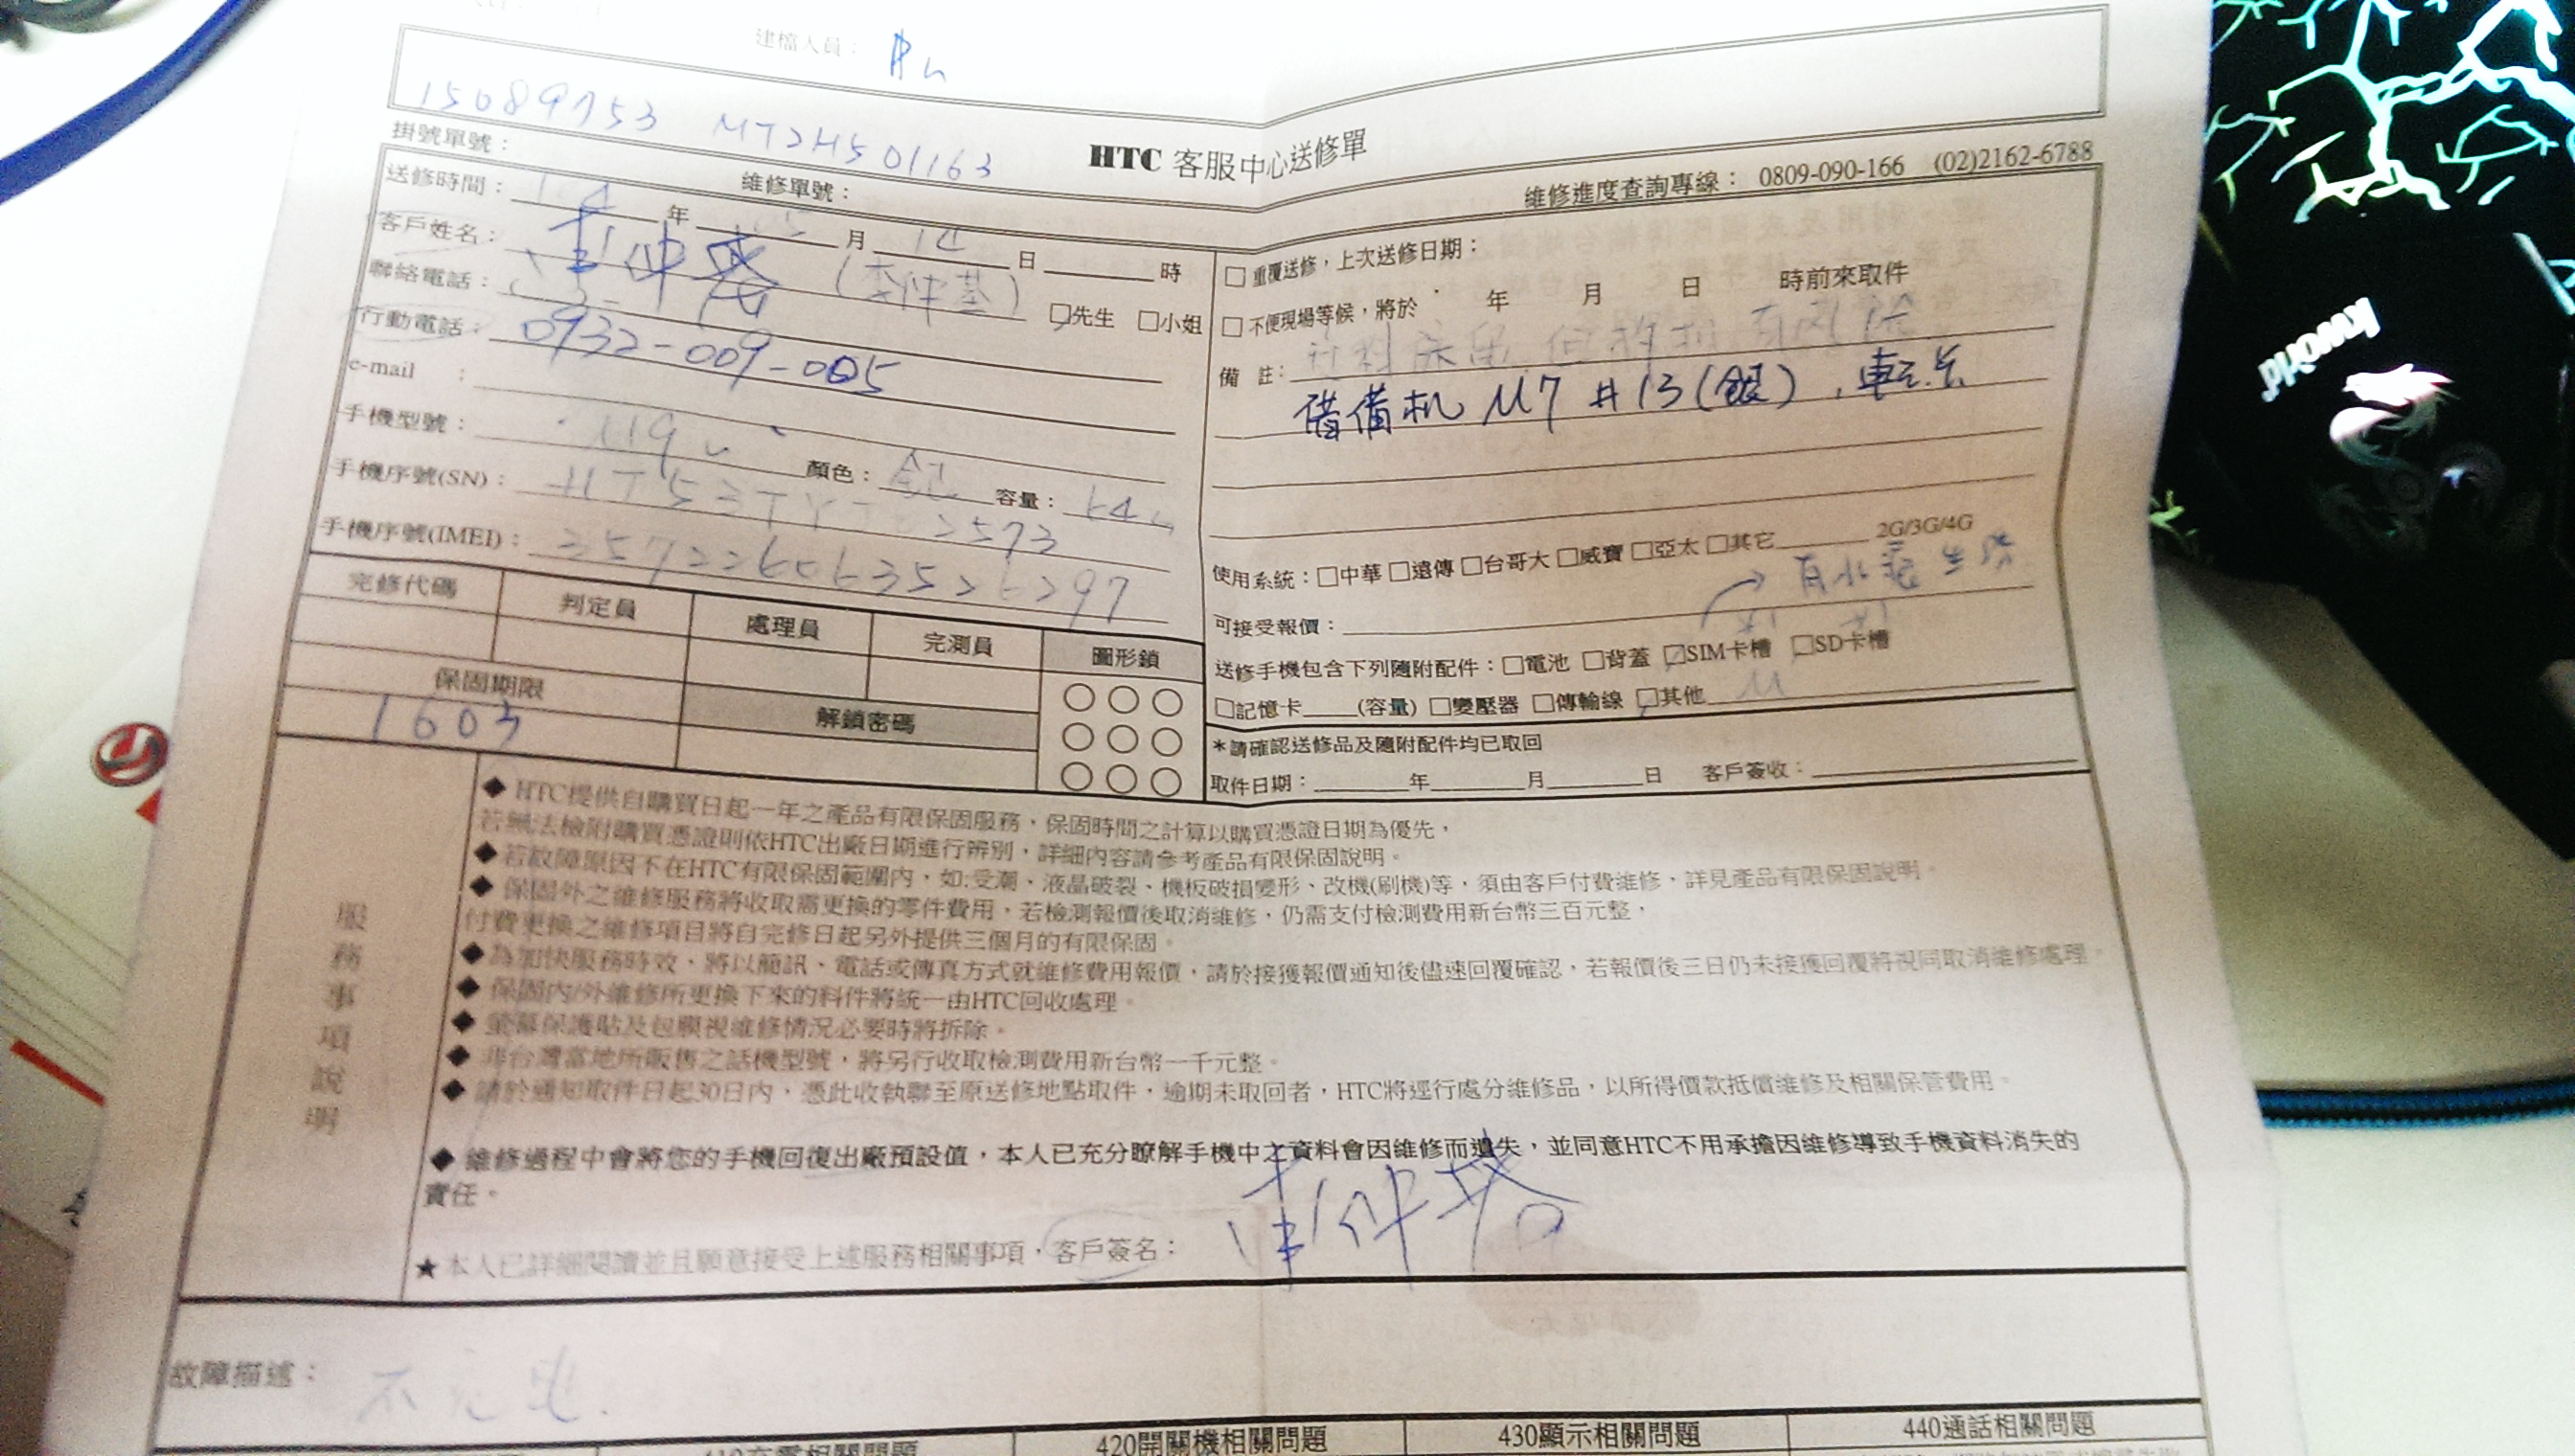 建檔人員：
15089753 MT2H501163
HTC 客服中心送修單
掛號單號：
維修單號：
維修進度查詢專線： 0809-090-166 (02)2162-6788
送修時間： 年 月 14 日 時
客戶姓名： (李仲基) □先生 □小姐
聯絡電話：
行動電話： 0932-009-005
e-mail ：
手機型號： 顏色： 銀 容量：
手機序號(SN)：
手機序號(IMEI)：
□ 重覆送修，上次送修日期：
□ 不便現場等候，將於 年 月 日 時前來取件
備 註：
借備机 M7 #13(銀)
使用系統：□中華 □遠傳 □台哥大 □威寶 □亞太 □其它 2G/3G/4G
可接受報價：
送修手機包含下列隨附配件：□電池 □背蓋 ☑SIM卡槽 ☑SD卡槽
□記憶卡 (容量) □變壓器 □傳輸線 ☑其他
＊請確認送修品及隨附配件均已取回
取件日期： 年 月 日 客戶簽收：
完修代碼 判定員 處理員 完測員 圖形鎖
保固期限 解鎖密碼
1603
服務事項說明
◆ HTC提供自購買日起一年之產品有限保固服務，保固時間之計算以購買憑證日期為優先，
若無法檢附購買憑證則依HTC出廠日期進行辨別，詳細內容請參考產品有限保固說明。
◆ 若故障原因不在HTC有限保固範圍內，如:受潮、液晶破裂、機板破損變形、改機(刷機)等，須由客戶付費維修，詳見產品有限保固說明。
◆ 保固外之維修服務將收取需更換的零件費用，若檢測報價後取消維修，仍需支付檢測費用新台幣三百元整，
付費更換之維修項目將自完修日起另外提供三個月的有限保固。
◆ 為加快服務時效，將以簡訊、電話或傳真方式就維修費用報價，請於接獲報價通知後儘速回覆確認，若報價後三日仍未接獲回覆將視同取消維修處理。
◆ 保固內/外維修所更換下來的料件將統一由HTC回收處理。
◆ 螢幕保護貼及包膜視維修情況必要時將拆除。
◆ 非台灣當地所販售之話機型號，將另行收取檢測費用新台幣一千元整。
◆ 請於通知取件日起30日內，憑此收執聯至原送修地點取件，逾期未取回者，HTC將逕行處分維修品，以所得價款抵償維修及相關保管費用。
◆ 維修過程中會將您的手機回復出廠預設值，本人已充分瞭解手機中之資料會因維修而遺失，並同意HTC不用承擔因維修導致手機資料消失的
責任。
★本人已詳細閱讀並且願意接受上述服務相關事項，客戶簽名：
故障描述： 不充电.
410充電相關問題 420開關機相關問題 430顯示相關問題 440通話相關問題
kworld